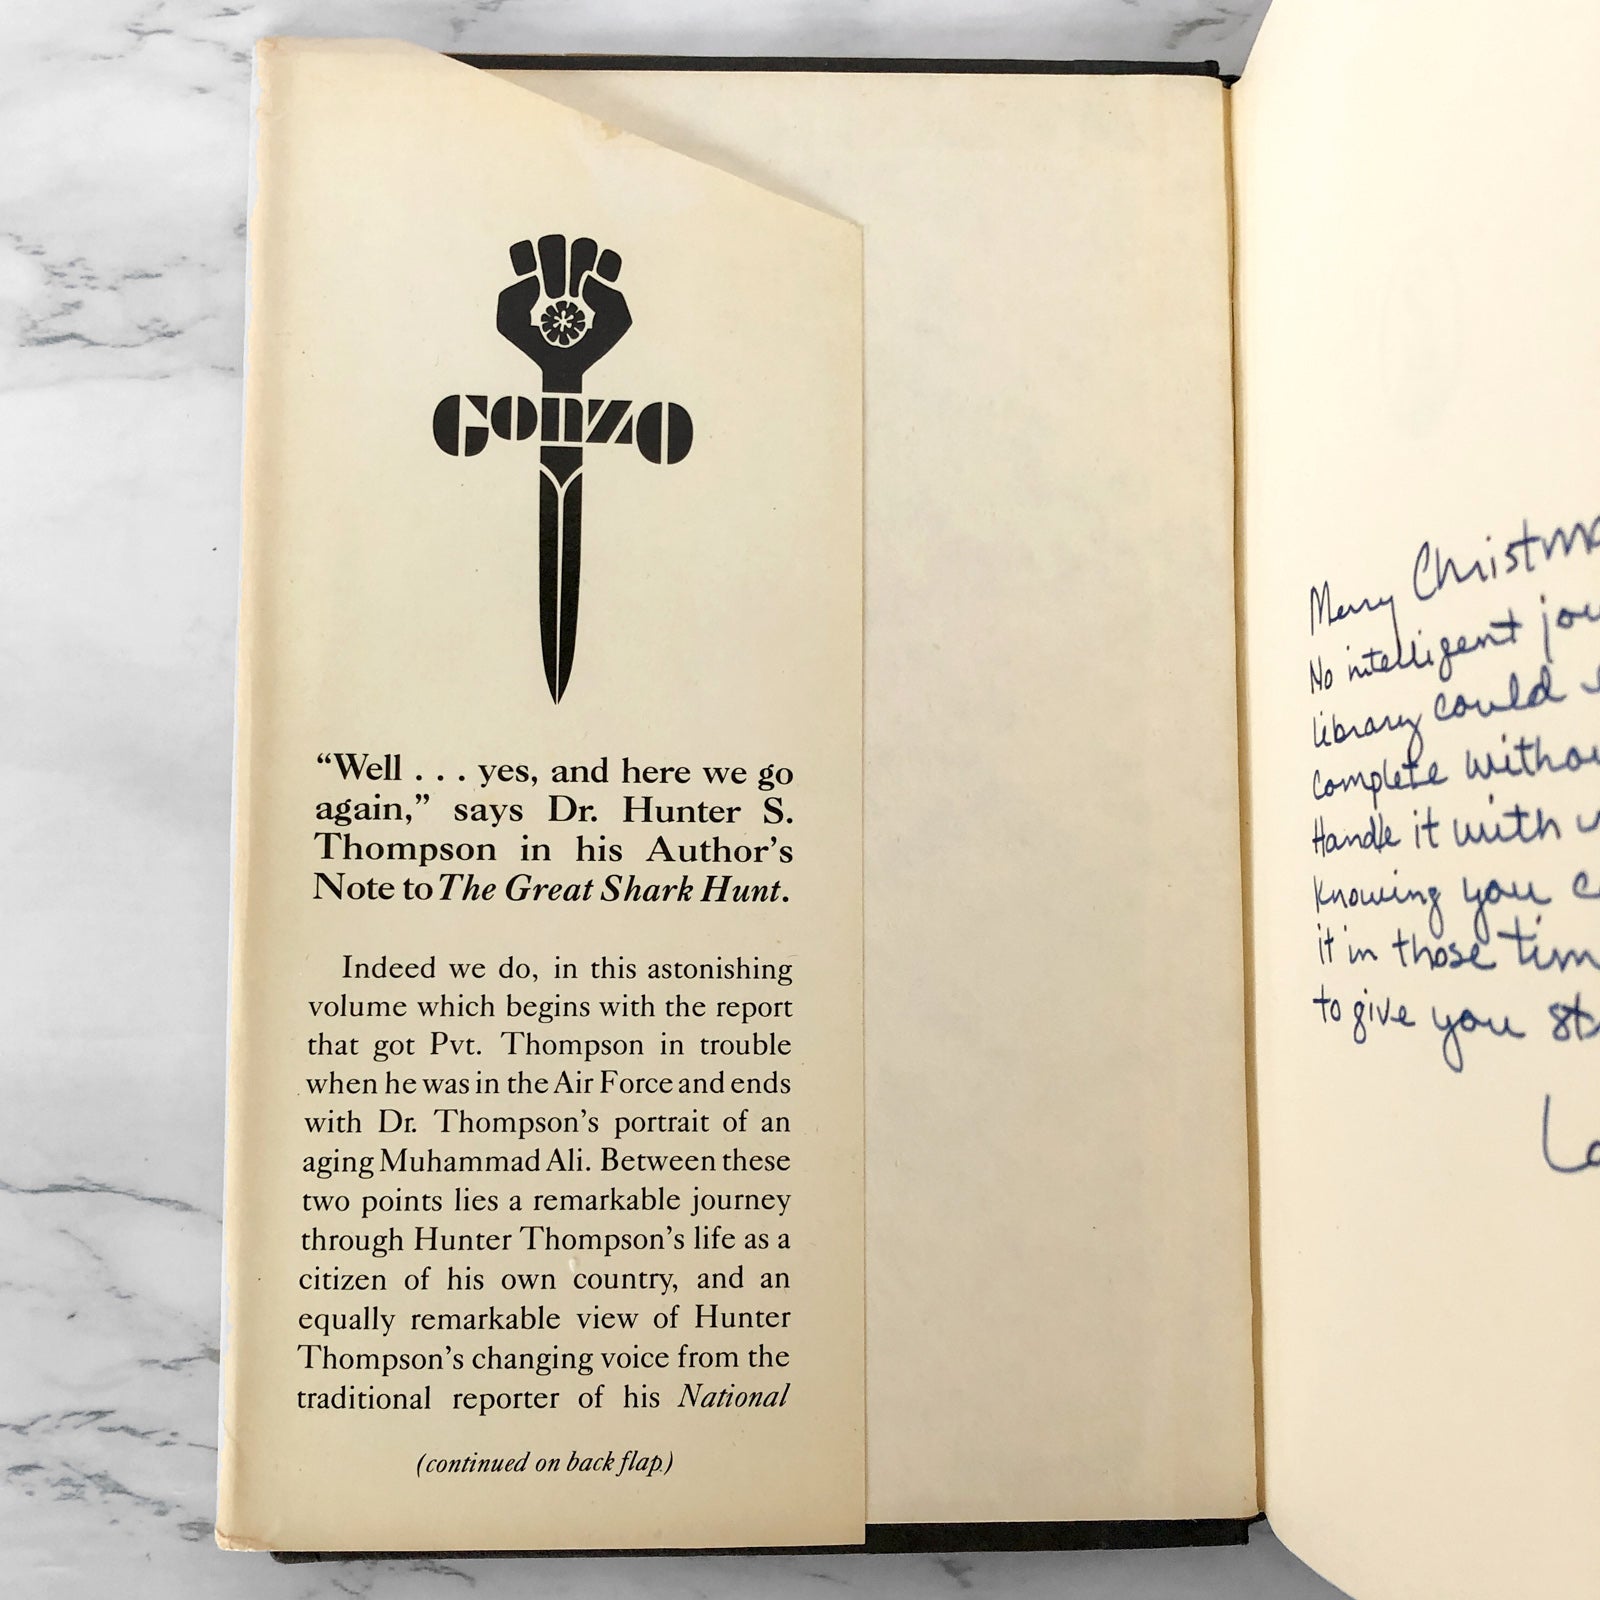 GONZO
“Well . . . yes, and here we go
again,” says Dr. Hunter S.
Thompson in his Author’s
Note to The Great Shark Hunt.
Indeed we do, in this astonishing
volume which begins with the report
that got Pvt. Thompson in trouble
when he was in the Air Force and ends
with Dr. Thompson’s portrait of an
aging Muhammad Ali. Between these
two points lies a remarkable journey
through Hunter Thompson’s life as a
citizen of his own country, and an
equally remarkable view of Hunter
Thompson’s changing voice from the
traditional reporter of his National
(continued on back flap)
Merry
No intelligent
library could
complete
Handle it with
Knowing you
it in those
to give you